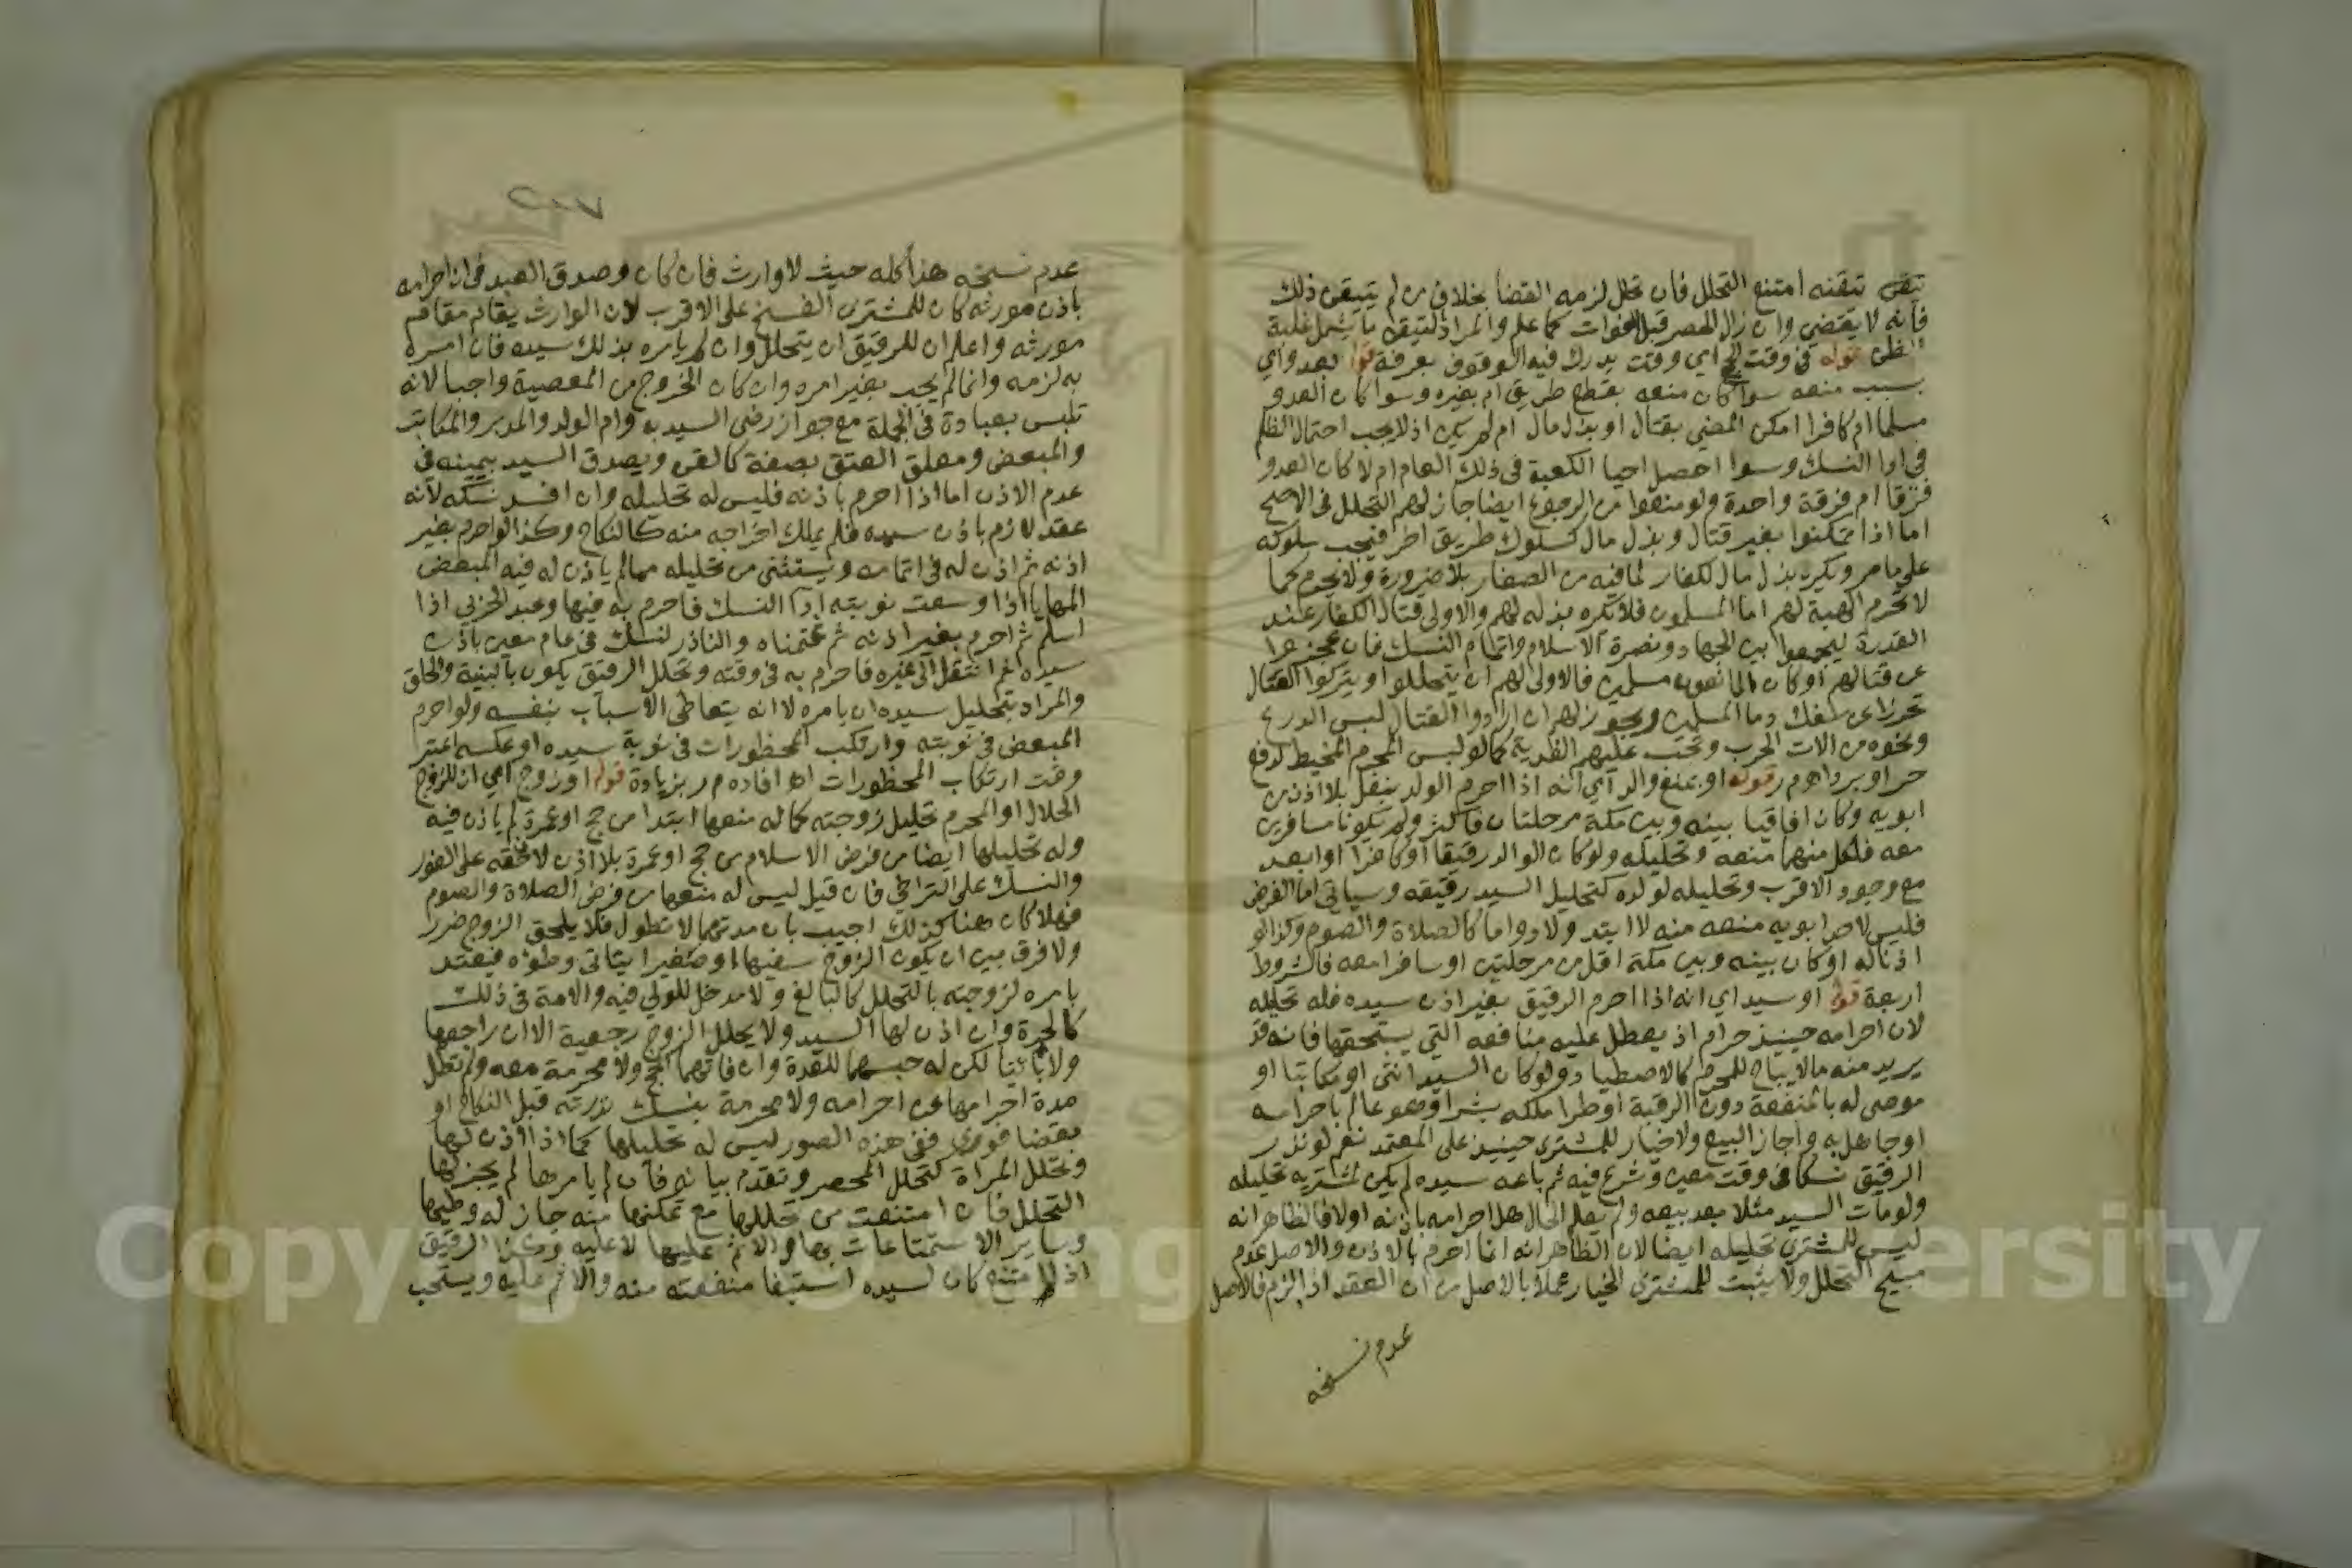 تيقن تيقنه امتنع التحلل فان تحلل لزمه القضا بخلاف من لم يتيقن ذلك
فانه لا يقضي وان زال الحصر قبل الفوات كما علم والمراد لتيقن ما يشمل غلبة
الظن قوله في وقت الحج اي وقت يدرك فيه الوقوف بعرفة قوله بعدو اي
بسبب منعه سوا كان منعه بقطع طريق ام بغيره وسوا كان العدو
مسلما ام كافرا امكن المضي بقتال او بذل مال ام لم يكن اذ لا يجب احتمال الظلم
في ادا النسك وسوا احصل احيا الكعبة في ذلك العام ام لا كان العدو
فرقا ام فرقة واحدة ولو منعوا من الرجوع ايضا جاز لهم التحلل في الاصح
اما اذا تمكنوا بغير قتال وبذل مال كسلوك طريق اخر فيجب سلوكه
على ما مر ويكره بذل مال لكفار لما فيه من الصغار بلا ضرورة ولا يحرم كما
لا تحرم الهبة لهم اما المسلمون فلا يكره بذله لهم والاولى قتال الكفار عند
القدرة ليجمعوا بين الجهاد ونصرة الاسلام واتمام النسك فان عجزوا
عن قتالهم او كان المانعون مسلمين فالاولى لهم ان يتحللوا ويتركوا القتال
تحرزا عن سفك دما المسلمين ويجوز لهم ان ارادوا القتال لبس الدرع
ونحوه من الات الحرب وتجب عليهم الفدية كما لو لبس المحرم المخيط لدفع
حر او برد اهـ م ر قوله او بمنع والد اي انه اذا احرم الولد بنفل بلا اذن من
ابويه وكان افاقيا بينه وبين مكة مرحلتان فاكثر ولم يكونا مسافرين
معه فلكل منهما منعه وتحليله ولو كان الوالد رقيقا او كافرا او ابعد
مع وجود الاقرب وتحليله لولده كتحليل السيد رقيقه وسياتي اما الفرض
فليس لاحد ابويه منعه منه لا ابتدا ولا دواما كالصلاة والصوم وكذا لو
اذنا له او كان بينه وبين مكة اقل من مرحلتين او سافرا معه فالشروط
اربعة قوله او سيد اي انه اذا احرم الرقيق بغير اذن سيده فله تحليله
لان احرامه حينيذ حرام اذ يعطل عليه منافعه التي يستحقها فانه قد
يريد منه ما لا يباح للمحرم كالاصطياد ولو كان السيد انثى او مكاتبا او
موصى له بالمنفعة دون الرقبة او طرا ملكه بشرا وهو عالم باحرامه
او جاهل به واجاز البيع ولا خيار للمشتري حينيذ على المعتمد نعم لو نذر
الرقيق نسكا في وقت معين وشرع فيه ثم باعه سيده لم يكن لمشتريه تحليله
ولو مات السيد مثلا بعد بيعه ولم يعلم الحال هل احرامه باذنه او لا فالظاهر انه
ليس للمشتري تحليله ايضا لان الظاهر انه انما احرم بالاذن والاصل عدم
مبيح التحلل ولا يثبت للمشتري الخيار عملا بالاصل من ان العقد اذا لزم فالاصل
عدم نسخه
عدم نسخه هذا كله حيث لا وارث فان كان وصدق العبد في ان احرامه
باذن مورثه كان للمشتري الفسخ على الاقرب لان الوارث يقام مقام
مورثه واعلم ان للرقيق ان يتحلل وان لم يامره بذلك سيده فان امره
به لزمه وانما لم يجب بغير امره وان كان الخروج من المعصية واجبا لانه
تلبس بعبادة في الجملة مع جواز رضى السيد به وام الولد والمدبر والمكاتب
والمبعض ومعلق العتق بصفة كالقن ويصدق السيد بيمينه في
عدم الاذن اما اذا احرم باذنه فليس له تحليله وان افسد نسكه لانه
عقد لازم باذن سيده فلم يملك اخراجه منه كالنكاح وكذا لو احرم بغير
اذنه ثم اذن له في اتمامه ويستثنى من تحليله مما لم ياذن له فيه المبعض
المهايا اذا وسعت نوبته ادا النسك فاحرم به فيها وعبد الحربي اذا
اسلم ثم احرم بغير اذنه ثم غنمناه والناذر لنسك في عام معين باذن
سيده ثم انتقل الى غيره فاحرم به في وقته وتحلل الرقيق يكون بالنية والحلق
والمراد بتحليل سيده ان يامره لا انه يتعاطى الاسباب بنفسه ولو احرم
المبعض في نوبته وارتكب المحظورات في نوبة سيده او عكسه اعتبر
وقت ارتكاب المحظورات اهـ افاده م ر بزيادة قوله او زوج اي ان للزوج
الحلال او المحرم تحليل زوجته كما له منعها ابتدا من حج او عمرة لم ياذن فيه
وله تحليلها ايضا من فرض الاسلام من حج او عمرة بلا اذن لان حقه على الفور
والنسك على التراخي فان قيل ليس له منعها من فرض الصلاة والصوم
فهلا كان هنا كذلك اجيب بان مدتهما لا تطول فلا يلحق الزوج ضرر
ولا فرق بين ان يكون الزوج سفيها او صغيرا يتاتى وطؤه فيعتد
بامره لزوجته بالتحلل كالبالغ ولا مدخل للولي فيه والامة في ذلك
كالحرة وان اذن لها السيد ولا يحلل الزوج رجعية الا ان راجعها
ولا باينا لكن له حبسهما للعدة وان فاتهما الحج ولا محرمة معه ولم تطل
مدة احرامها عن احرامه ولا محرمة بنسك نذرته قبل النكاح او
بقضا فوري ففي هذه الصور ليس له تحليلها كما اذا اذن لها
وتحلل المراة كتحلل المحصر وتقدم بيانه فان لم يامرها لم يجز لها
التحلل فان امتنعت من تحللها مع تمكنها منه جاز له وطيها
وساير الاستمتاعات بها والاثم عليها لا عليه وكذا الرقيق
اذا امتنع كان لسيده استيفا منفعته منه والاثم عليه ويستحب